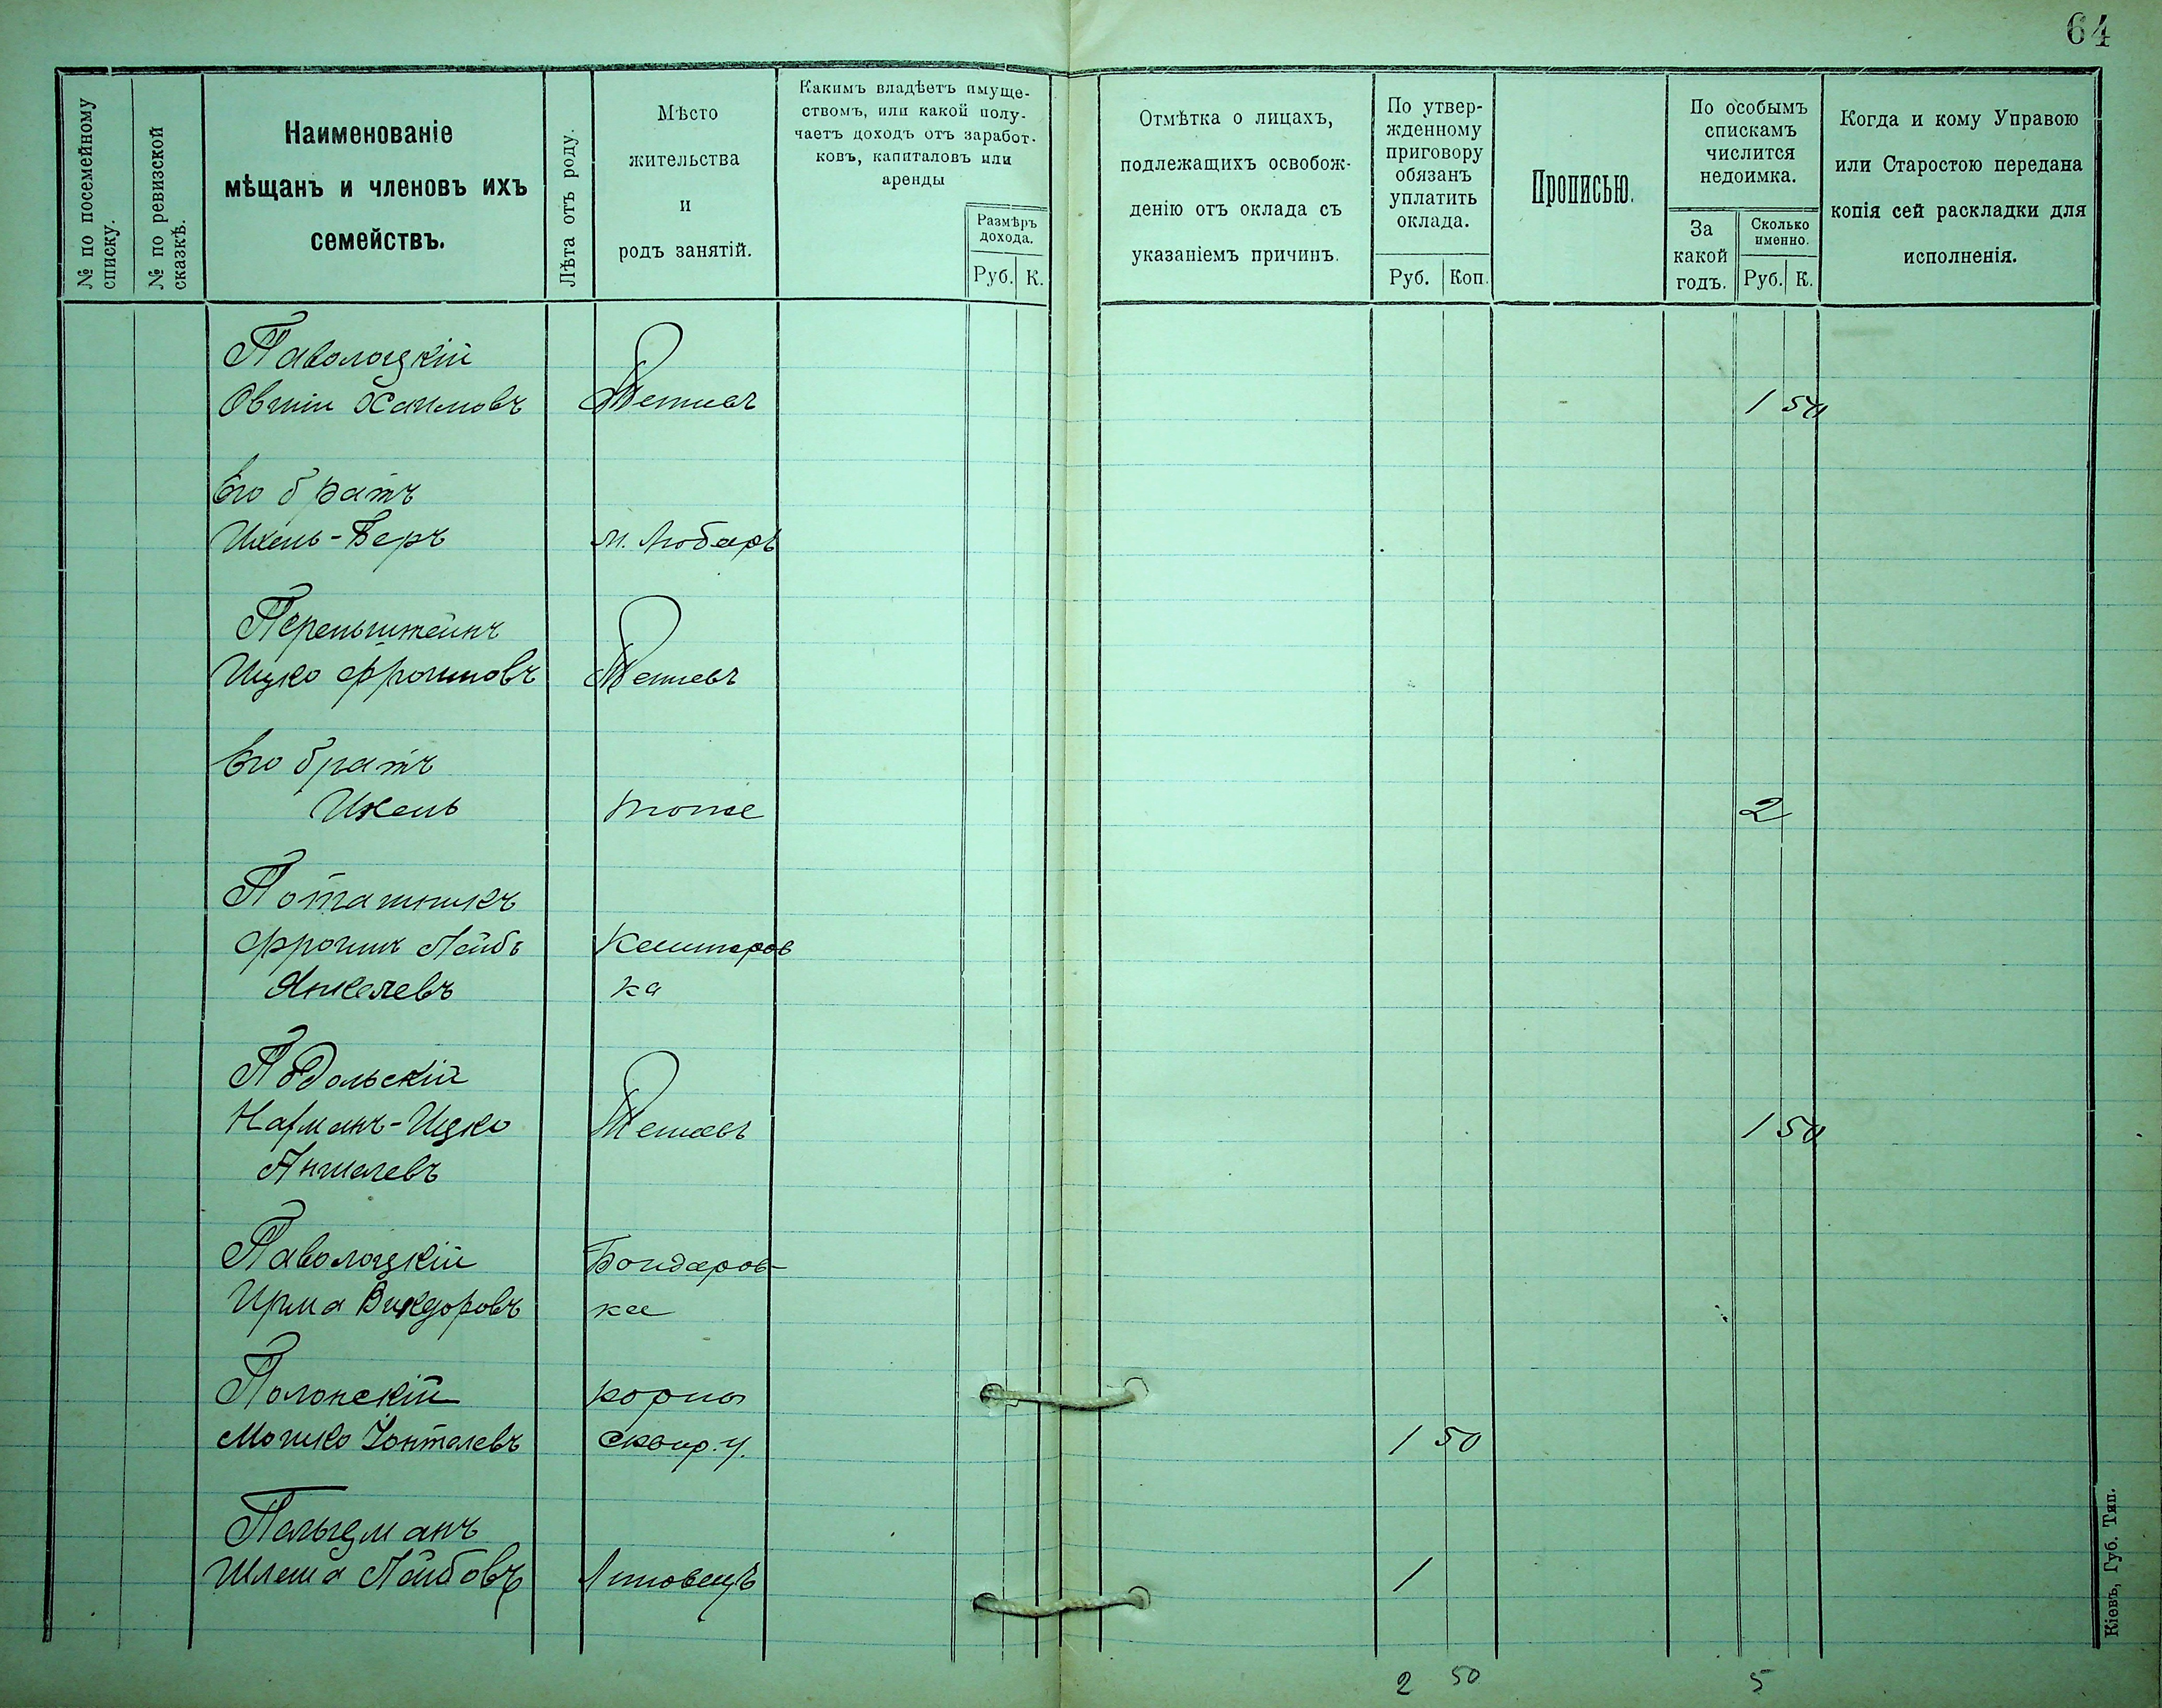 64
№ по посемейному списку.
№ по ревизской сказкѣ.
Наименованіе
мѣщанъ и членовъ ихъ
семействъ.
Лѣта отъ роду.
Мѣсто
жительства
и
родъ занятій.
Какимъ владѣетъ имуще-
ствомъ, или какой полу-
чаетъ доходъ отъ заработ-
ковъ, капиталовъ или
аренды
Размѣръ
дохода.
Руб. К.
Отмѣтка о лицахъ,
подлежащихъ освобож-
денію отъ оклада съ
указаніемъ причинъ.
По утвер-
жденному
приговору
обязанъ
уплатить
оклада.
Руб. Коп.
Прописью.
По особымъ
спискамъ
числится
недоимка.
За
какой
годъ.
Сколько
именно.
Руб. К.
Когда и кому Управою
или Старостою передана
копія сей раскладки для
исполненія.
Паволоцкій
Овшій Хаимовъ Тетіевъ 1 50
Его братъ
Ихель-Беръ м. Любаръ
Перельштейнъ
Ицко Фроимовъ Тетіевъ
Его братъ
Ихель тоже 2
Поташникъ
Фроимъ Лейбъ
Янкелевъ ка
Подольскій
Нахманъ-Ицко Тетіевъ 1 50
Аншелевъ
Паволоцкій Бондаров-
Ирма ка
Полонскій
Мошко Іонтелевъ Сквир. у. 1 50
Пельцманъ
Шлема Лейбовъ Липовецъ 1
2 50 5
Кіевъ, Губ. Тип.